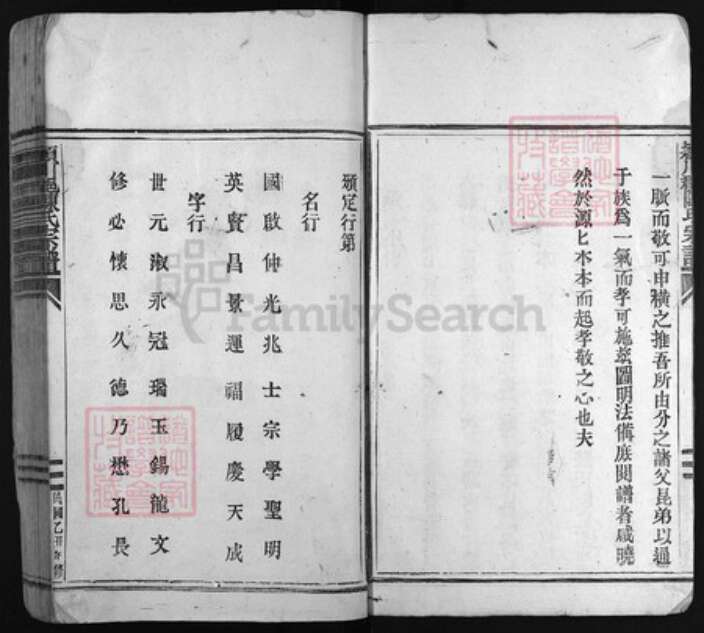 一脈而敬可申橫之推吾所由分之諸父昆弟以通
于族爲一氣而孝可施玆圖明法備庶閱譜者咸曉
然於源匕本本而起孝敬之心也夫
頒定行第
名行
國啟仲光兆士宗學聖明
英賢昌景運福履慶天成
字行
世元淑永冠瑞玉錫龍文
修必懷思久德乃懋孔長
氏宗譜
民國乙丑年修
FamilySearch